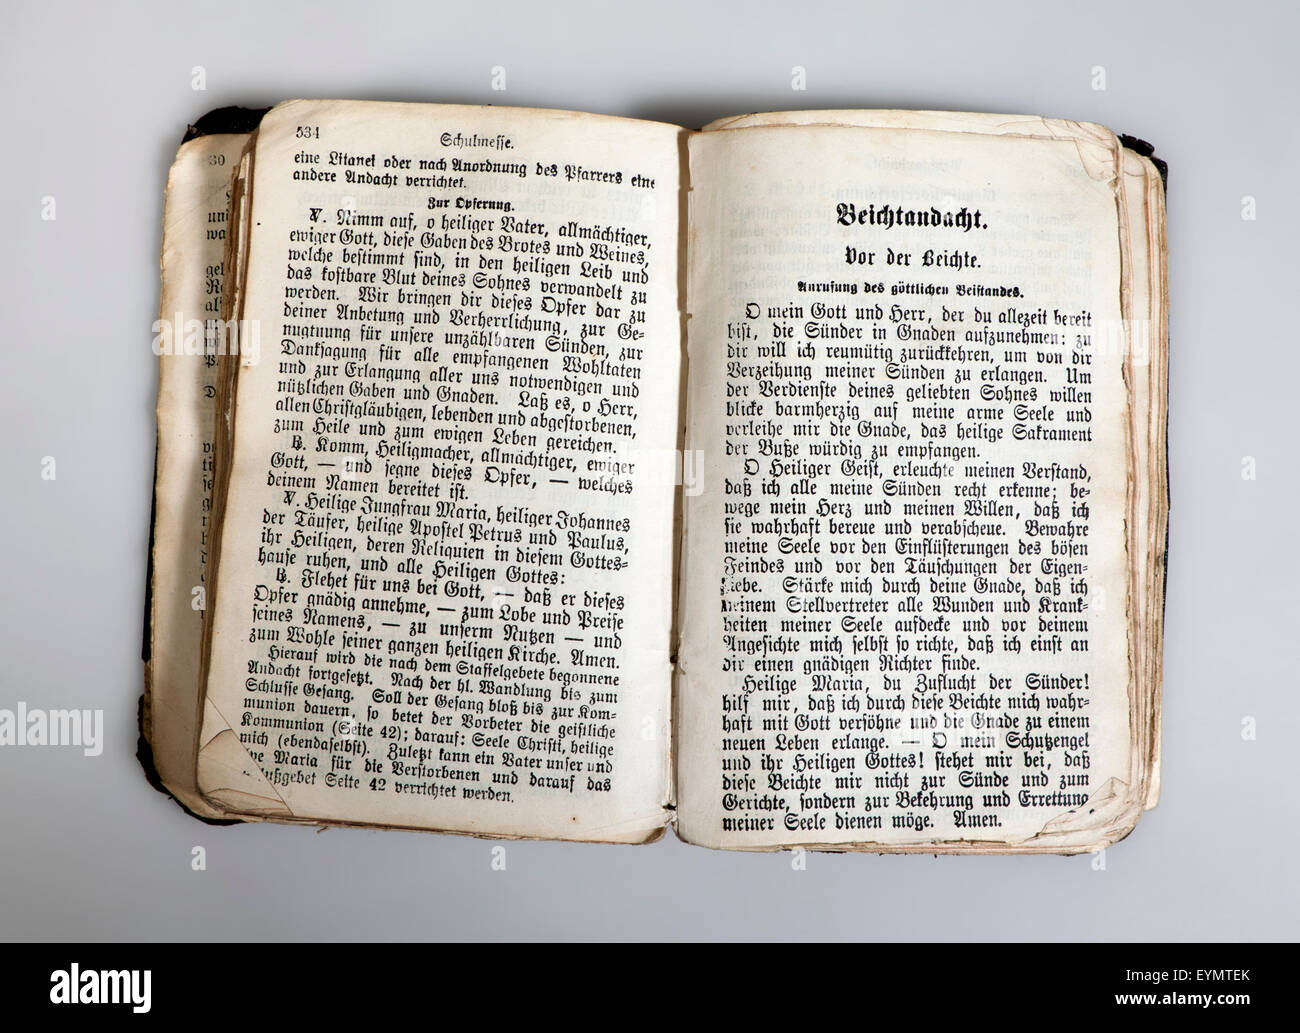 534
Schulmesse.
eine Litanei oder nach Anordnung des Pfarrers eine
andere Andacht verrichtet.
Zur Opferung.
V. Nimm auf, o heiliger Vater, allmächtiger,
ewiger Gott, diese Gaben des Brotes und Weines,
welche bestimmt sind, in den heiligen Leib und
das kostbare Blut deines Sohnes verwandelt zu
werden. Wir bringen dir dieses Opfer dar zu
deiner Anbetung und Verherrlichung, zur Ge-
nugtuung für unsere unzählbaren Sünden, zur
Danksagung für alle empfangenen Wohltaten
und zur Erlangung aller uns notwendigen und
nützlichen Gaben und Gnaden. Laß es, o Herr,
allen Christgläubigen, lebenden und abgestorbenen,
zum Heile und zum ewigen Leben gereichen.
R. Komm, Heiligmacher, allmächtiger, ewiger
Gott, — und segne dieses Opfer, — welches
deinem Namen bereitet ist.
V. Heilige Jungfrau Maria, heiliger Johannes
der Täufer, heilige Apostel Petrus und Paulus,
ihr Heiligen, deren Reliquien in diesem Gottes-
hause ruhen, und alle Heiligen Gottes:
R. Flehet für uns bei Gott, — daß er dieses
Opfer gnädig annehme, — zum Lobe und Preise
seines Namens, — zu unserm Nutzen — und
zum Wohle seiner ganzen heiligen Kirche. Amen.
Hierauf wird die nach dem Staffelgebete begonnene
Andacht fortgesetzt. Nach der hl. Wandlung bis zum
Schlusse Gesang. Soll der Gesang bloß bis zur Kom-
munion dauern, so betet der Vorbeter die geistliche
Kommunion (Seite 42); darauf: Seele Christi, heilige
mich (ebendaselbst). Zuletzt kann ein Vater unser und
Maria für die Verstorbenen und darauf das
Seite 42 verrichtet werden.
Beichtandacht.
Vor der Beichte.
Anrufung des göttlichen Beistandes.
O mein Gott und Herr, der du allezeit bereit
bist, die Sünder in Gnaden aufzunehmen: zu
dir will ich reumütig zurückkehren, um von dir
Verzeihung meiner Sünden zu erlangen. Um
der Verdienste deines geliebten Sohnes willen
blicke barmherzig auf meine arme Seele und
verleihe mir die Gnade, das heilige Sakrament
der Buße würdig zu empfangen.
O Heiliger Geist, erleuchte meinen Verstand,
daß ich alle meine Sünden recht erkenne; be-
wege mein Herz und meinen Willen, daß ich
sie wahrhaft bereue und verabscheue. Bewahre
meine Seele vor den Einflüsterungen des bösen
Feindes und vor den Täuschungen der Eigen-
liebe. Stärke mich durch deine Gnade, daß ich
deinem Stellvertreter alle Wunden und Krank-
heiten meiner Seele aufdecke und vor deinem
Angesichte mich selbst so richte, daß ich einst an
dir einen gnädigen Richter finde.
Heilige Maria, du Zuflucht der Sünder!
hilf mir, daß ich durch diese Beichte mich wahr-
haft mit Gott versöhne und die Gnade zu einem
neuen Leben erlange. — O mein Schutzengel
und ihr Heiligen Gottes! stehet mir bei, daß
diese Beichte mir nicht zur Sünde und zum
Gerichte, sondern zur Bekehrung und Errettung
meiner Seele dienen möge. Amen.
alamy stock photo
EYMTEK
www.alamy.com